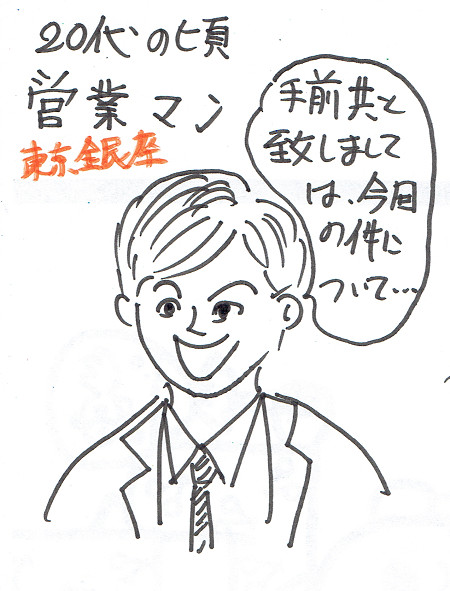 20代の頃
営業マン
東京銀座
手前共と
致しまして
は、今回
の件に
ついて…